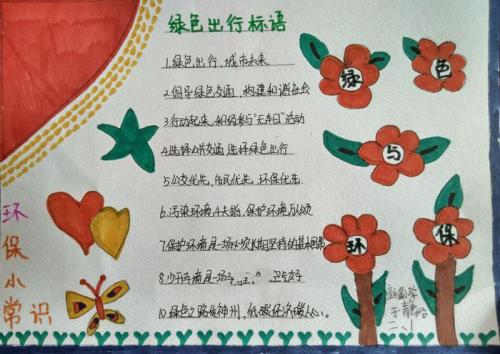 绿色出行标语
1.绿色出行,城市未来
2.倡导绿色交通,构建和谐社会
3.行动起来,积极参与"无车日"活动
4.选择公共交通 选择绿色出行
5.公交优先,市民优先,环保优先
6.污染环境 保护环境
7.保护环境是一场 长期坚持的
8.少开车
10.绿色之路 神州,低碳经济暖人心。
绿色与环保
环保小常识